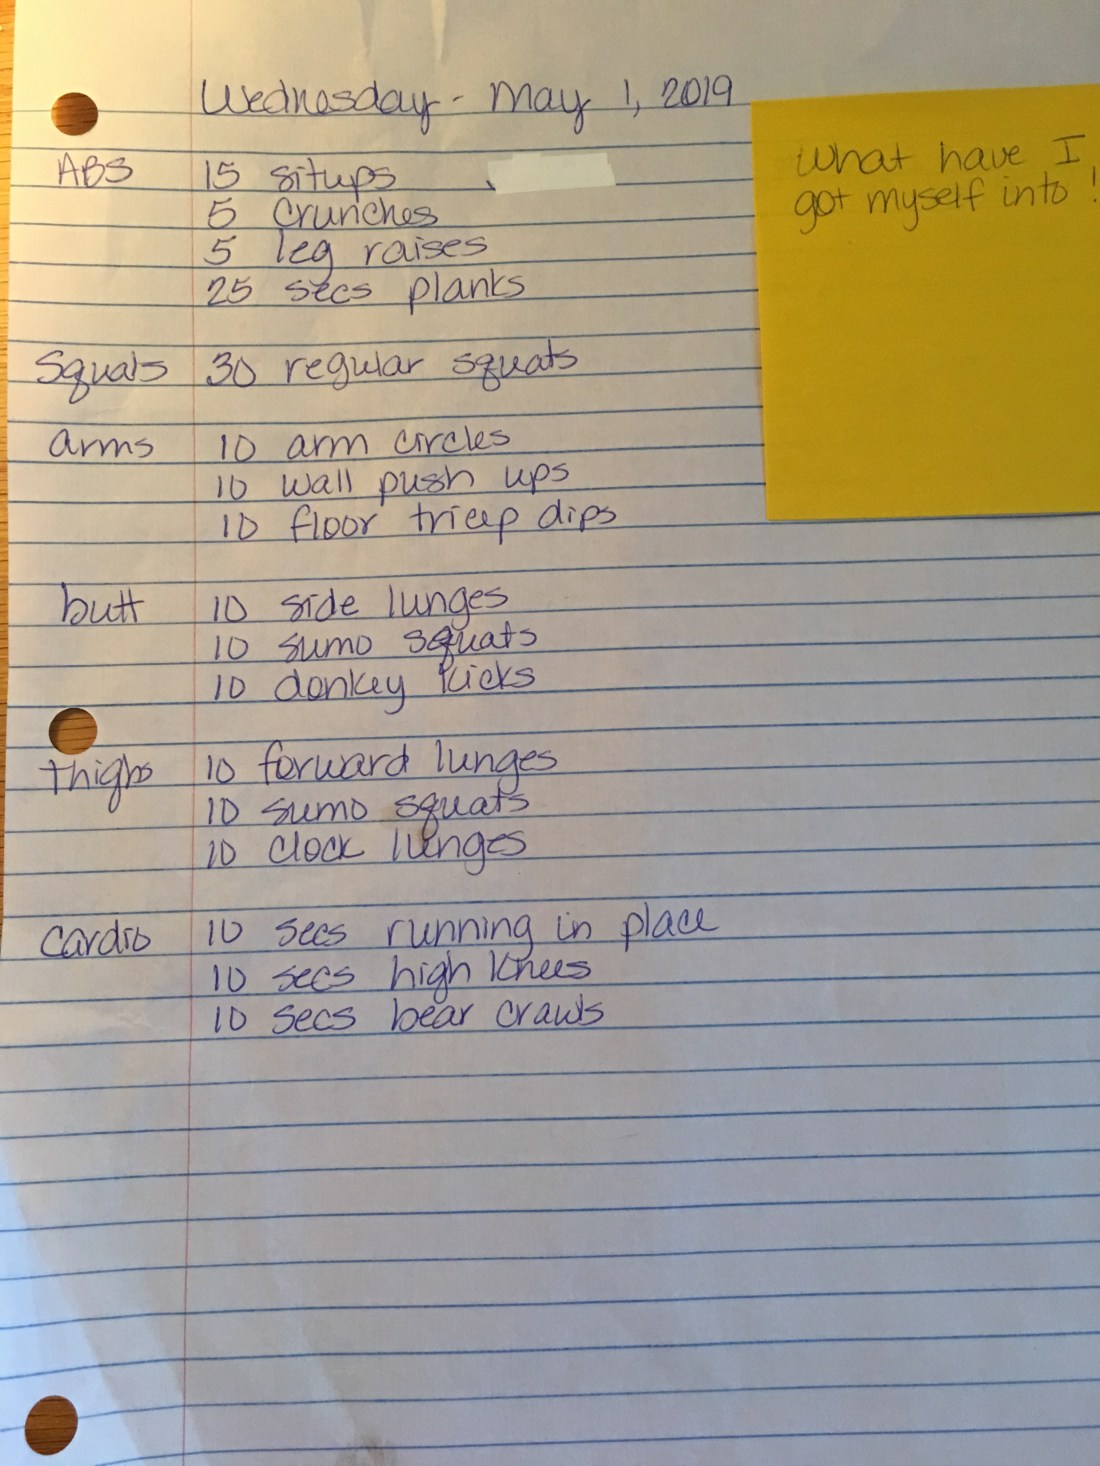 Wednesday - May 1, 2019
ABS 15 situps
5 crunches
5 leg raises
25 secs planks
Squats 30 regular squats
arms 10 arm circles
10 wall push ups
10 floor tricep dips
butt 10 side lunges
10 sumo squats
10 donkey kicks
thighs 10 forward lunges
10 sumo squats
10 clock lunges
Cardio 10 secs running in place
10 secs high knees
10 secs bear crawls
What have I
got myself into!